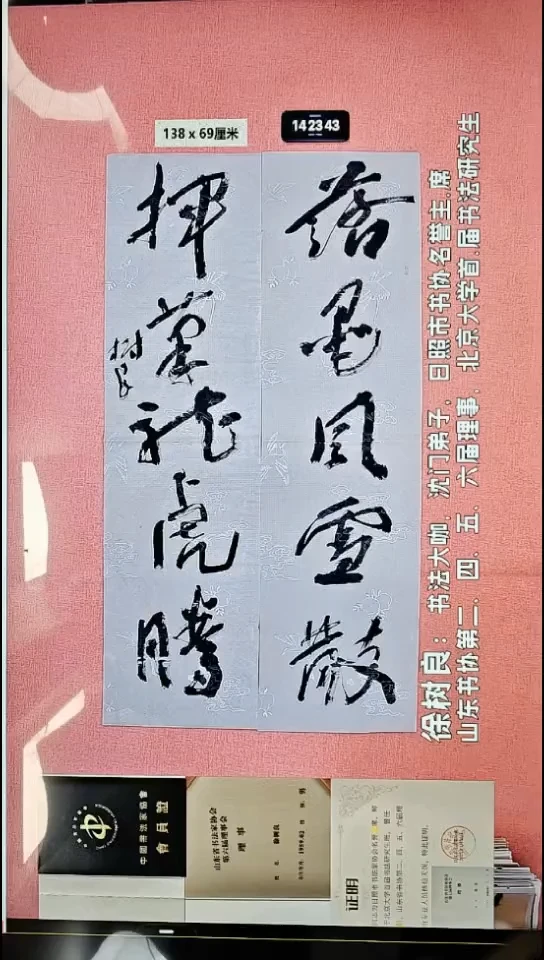 138 x 69厘米
14 23 43
落墨风雪散
挥笔龙虎腾
树良
徐树良：书法大咖．沈门弟子．日照市书协名誉主.席
山东书协第二．四．五．六届理事．北京大学首.届书法研究生
中國書法家協會
會員證
山东省书法家协会
第六届理事会
理事
证明